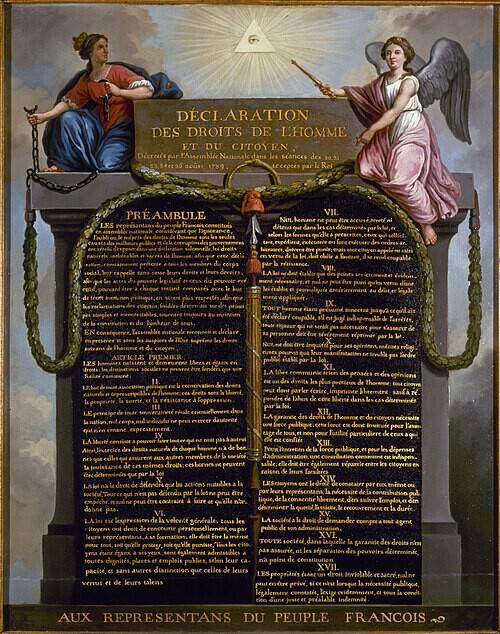 DÉCLARATION
DES DROITS DE L'HOMME
ET DU CITOYEN,
Décrétés par l'Assemblée Nationale dans les séances des 20, 21
23, 24 et 26 août 1789, acceptés par le Roi
PRÉAMBULE
LES représentans du peuple François, constitués
en assemblée nationale, considérant que l'ignorance,
l'oubli ou le mépris des droits de l'homme sont les seules
causes des malheurs publics et de la corruption des gouvernemens
ont résolu d'exposer dans une déclaration solemnelle, les droits
naturels, inaliénables et sacrés de l'homme; afin que cette décla-
ration, constamment présente à tous les membres du corps
social, leur rappelle sans cesse leurs droits et leurs devoirs;
afin que les actes du pouvoir législatif et ceux du pouvoir exé-
cutif, pouvant être à chaque instant comparés avec le but
de toute institution politique, en soient plus respectés; afin que
les réclamations des citoyens, fondées désormais sur des prin-
cipes simples et incontestables, tournent toujours au maintien
de la constitution et du bonheur de tous.
EN conséquence, l'assemblée nationale reconnoit et déclare,
en présence et sous les auspices de l'Etre suprême les droits
suivans de l'homme et du citoyen.
ARTICLE PREMIER.
LES hommes naissent et demeurent libres et égaux en
droits; les distinctions sociales ne peuvent être fondées que sur
l'utilité commune.
II.
LE but de toute association politique est la conservation des droits
naturels et imprescriptibles de l'homme; ces droits sont la liberté,
la propriété, la sureté, et la résistance à l'oppression.
III.
LE principe de toute souveraineté réside essentiellement dans
la nation, nul corps, nul individu ne peut exercer d'autorité
qui n'en émane expressement.
IV.
LA liberté consiste à pouvoir faire tout ce qui ne nuit pas à autrui
Ainsi, l'exercice des droits naturels de chaque homme, n'a de bor-
nes que celles qui assurent aux autres membres de la société
la jouissance de ces mêmes droits; ces bornes ne peuvent
être déterminées que par la loi
V.
LA loi n'a le droit de défendre que les actions nuisibles à la
société. Tout ce qui n'est pas défendu par la loi ne peut être
empêché, et nul ne peut être contraint à faire ce qu'elle n'or-
donne pas.
VI.
LA loi est l'expression de la volonté générale; tous les
citoyens ont droit de concourir personnellement, ou par
leurs représentans, à sa formation; elle doit être la même
pour tous, soit qu'elle protege, soit qu'elle punisse. Tous les cito-
yens étant égaux à ses yeux, sont également admissibles à
toutes dignités, places et emplois publics, selon leur ca-
pacité, et sans autres distinction que celles de leurs
vertus et de leurs talens
VII.
NUL homme ne peut être accusé, arreté ni
détenu que dans les cas déterminés par la loi, et
selon les formes qu'elle a prescrites, ceux qui sollici-
tent, expédient, exécutent ou font exécuter des ordres ar-
bitraires, doivent être punis; mais tout citoyen appelé ou saisi
en vertu de la loi, doit obéir à l'instant, il se rend coupable
par la résistance.
VIII.
LA loi ne doit établir que des peines strictement et évidem-
ment nécessaires, et nul ne peut être puni qu'en vertu d'une
loi établie et promulguée antérieurement au délit, et légale-
ment appliquée.
IX.
TOUT homme étant présumé innocent jusqu'à ce qu'il ait
été déclaré coupable, s'il est jugé indispensable de l'arrêter,
toute rigueur qui ne seroit pas nécessaire pour s'assurer de
sa personne doit être sévèrement réprimée par la loi.
X.
NUL ne doit être inquiété pour ses opinions, mêmes religi-
euses pourvu que leur manifestation ne trouble pas l'ordre
public établi par la loi.
XI.
LA libre communication des pensées et des opinions
est un des droits les plus précieux de l'homme; tout citoyen
peut donc parler, écrire, imprimer librement, sauf à ré-
pondre de l'abus de cette liberté dans les cas déterminés
par la loi.
XII.
LA garantie des droits de l'homme et du citoyen nécessite
une force publique; cette force est donc instituée pour l'avan-
tage de tous, et non pour l'utilité particuliere de ceux à qui
elle est confiée.
XIII.
POUR l'entretien de la force publique, et pour les dépenses
d'administration, une contribution commune est indispen-
sable; elle doit être également répartie entre les citoyens
en raison de leurs facultés
XIV.
LES citoyens ont le droit de constater par eux même ou
par leurs représentans, la nécessité de la contribution pub-
lique, de la consentir librement, d'en suivre l'emploi, et d'en
déterminer la quotité, l'assiette, le recouvrement et la durée.
XV.
LA société a le droit de demander compte à tout agent
public de son administration.
XVI.
TOUTE société, dans laquelle la garantie des droits n'est
pas assurée, ni la séparation des pouvoirs déterminée,
n'a point de constitution
XVII.
LES propriétés étant un droit inviolable et sacré, nul ne
peut en être privé, si ce n'est lorsque la nécessité publique,
légalement constatée, l'exige évidemment, et sous la condi-
tion d'une juste et préalable indemnité.
AUX REPRESENTANS DU PEUPLE FRANCOIS